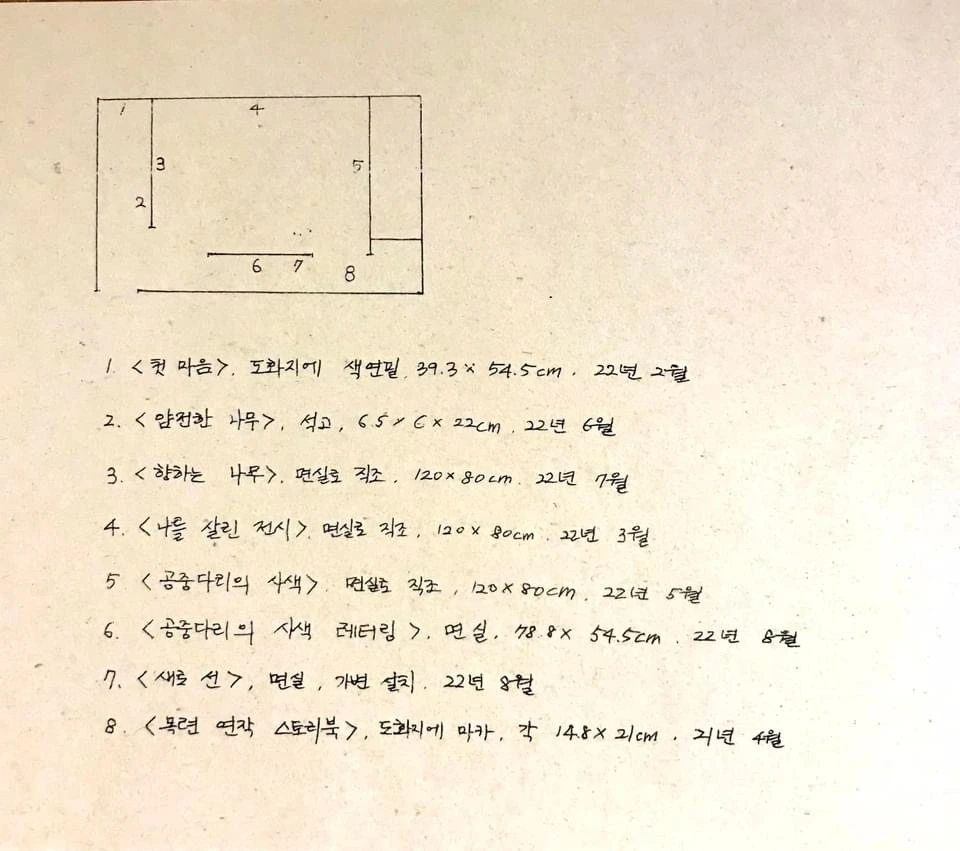 1
4
3
5
2
6 7
8
1. <첫 마음>. 도화지에 색연필. 39.3 × 54.5cm. 22년 2월
2. <얌전한 나무>. 석고, 6.5 × 6 × 22cm. 22년 6월
3. <향하는 나무>. 면실로 직조. 120 × 80cm. 22년 7월
4. <나를 살린 전시>. 면실로 직조. 120 × 80cm. 22년 3월
5 <공중다리의 사색>. 면실로 직조, 120 × 80cm. 22년 5월
6. <공중다리의 사색 레터링>, 면실, 78.8 × 54.5cm. 22년 8월
7. <새로 선>, 면실, 가변 설치. 22년 8월
8. <목련 연작 스토리북>, 도화지에 마카, 각 14.8 × 21cm. 21년 4월